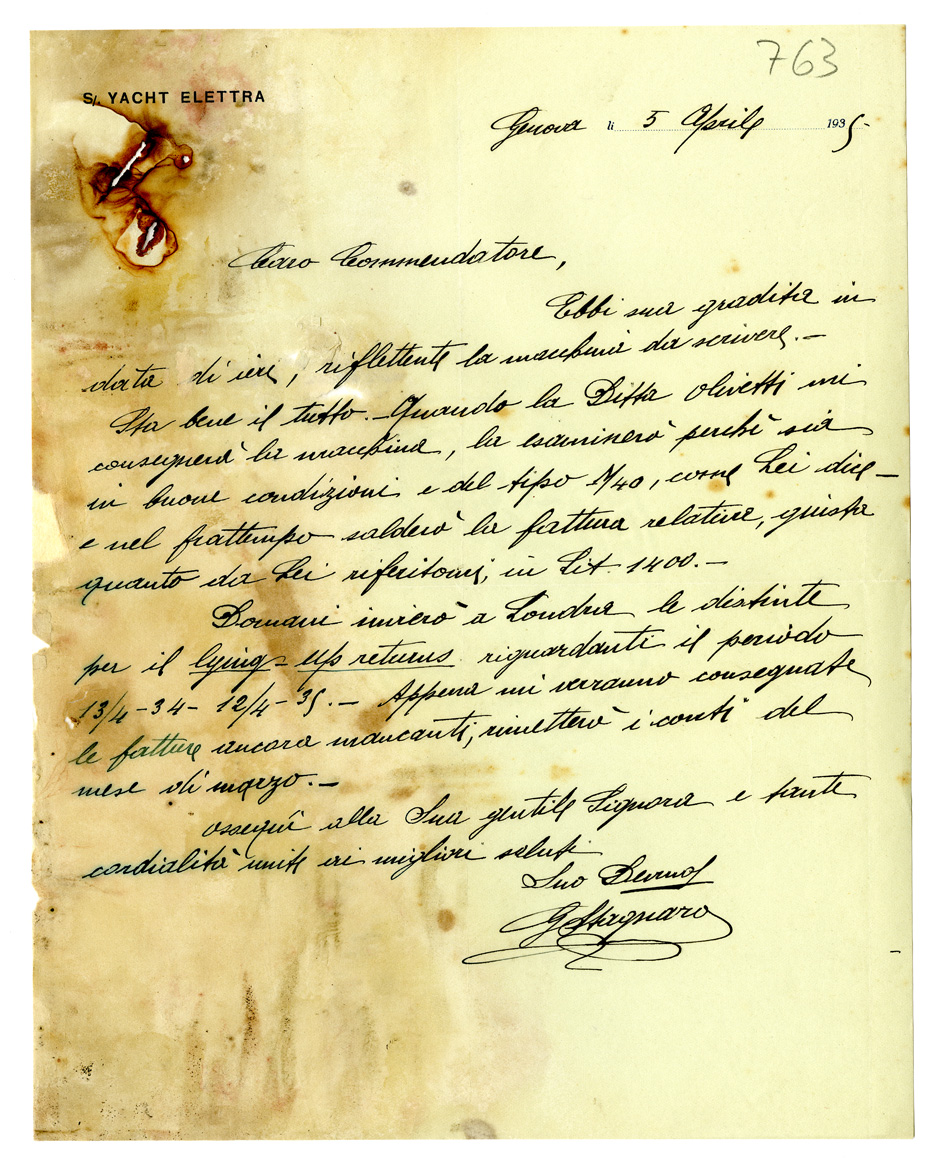 763
S/. YACHT ELETTRA
Genova li 5 Aprile 1935-
Caro Commendatore,
Ebbi sua gradita in
data di ieri, riflettente la macchina da scrivere.-
Sta bene il tutto.- Quando la Ditta Olivetti mi
consegnerà la macchina, la esaminerò perchè sia
in buone condizioni e del tipo M/40, come Lei dice-
e nel frattempo salderò la fattura relativa, giusta
quanto da Lei riferitomi, in Lit. 1400.-
Domani invierò a Londra le distinte
per il lying-up returns riguardanti il periodo
13/4-34- 12/4-35.- Appena mi verranno consegnate
le fatture ancora mancanti, rimetterò i conti del
mese di marzo.-
Ossequi alla Sua gentile Signora e tante
cordialità unite ai migliori saluti
Suo Devmo
GStagnaro